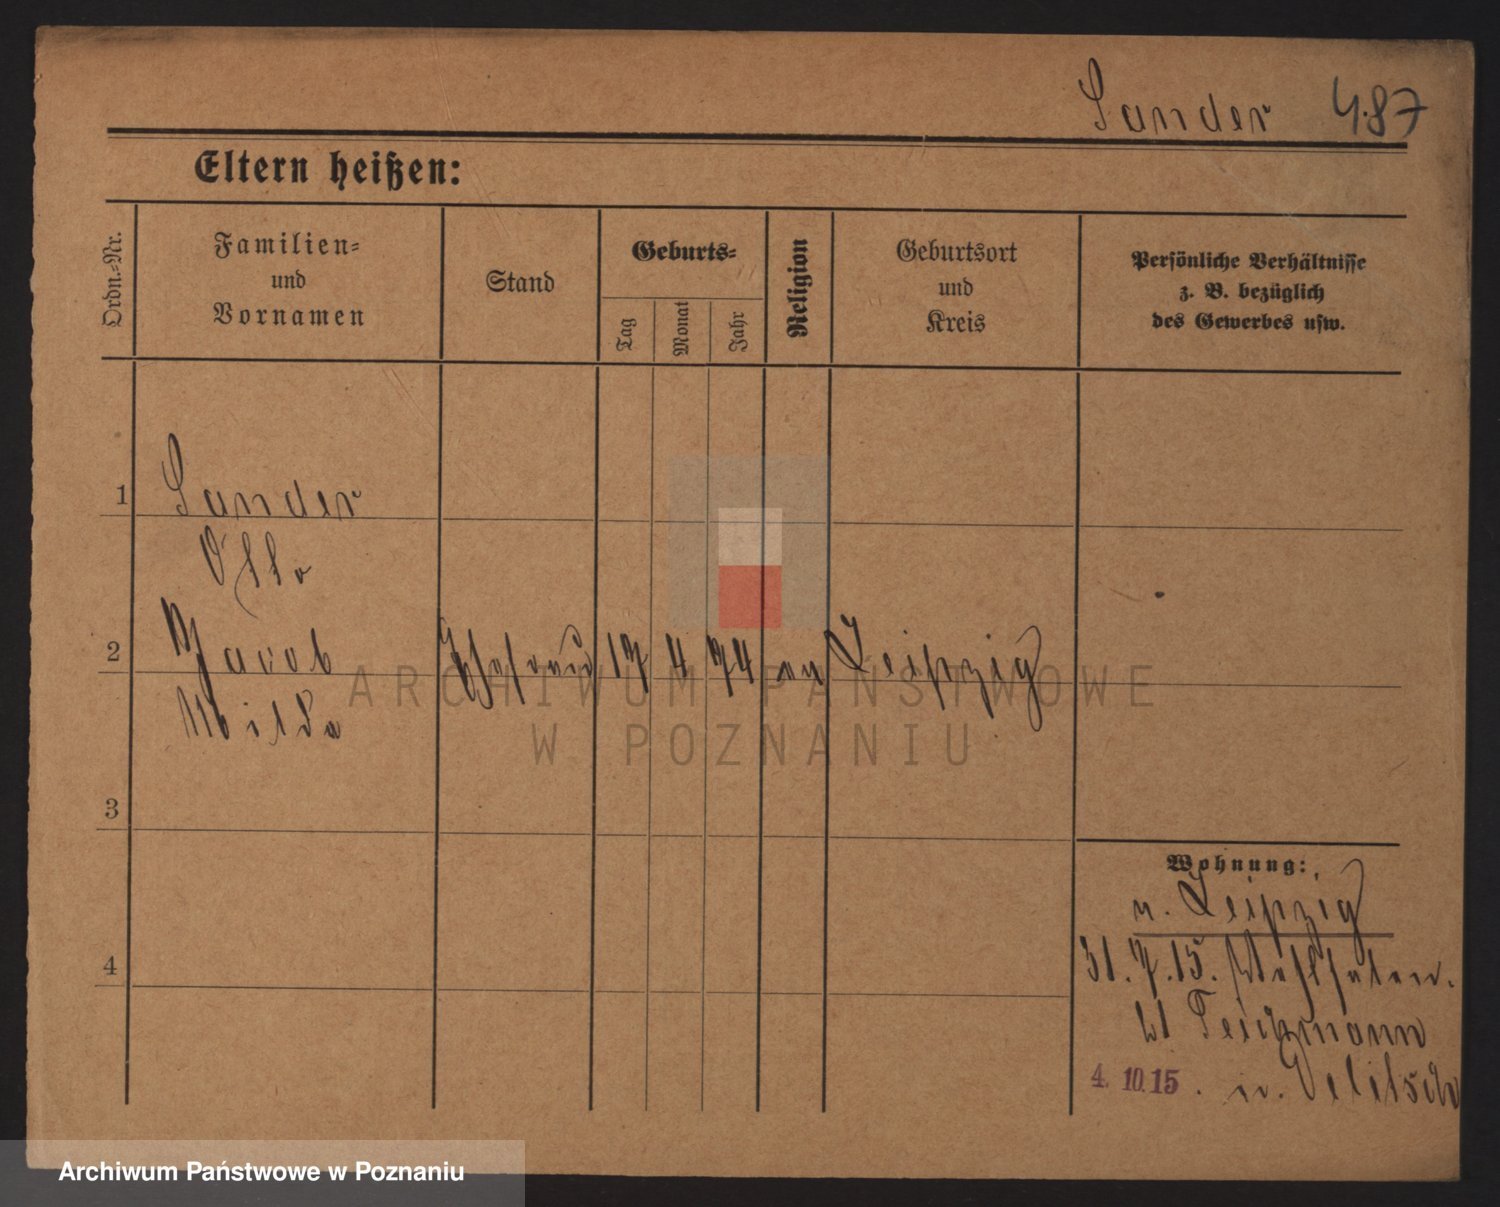 Sander 487
Eltern heißen:
Ordn.-Nr.
Familien-
und
Vornamen
Stand
Geburts-
Tag
Monat
Jahr
Religion
Geburtsort
und
Kreis
Persönliche Verhältnisse
z. B. bezüglich
des Gewerbes usw.
1 Sander
Otto
2 Jacob Ehefrau 17 4 74 ev Leipzig
Milda
3
4
Wohnung:
n. Leipzig
31. 7. 15.
b/ Teichmann
4. 10. 15. n. Delitsch
ARCHIWUM PAŃSTWOWE
W POZNANIU
Archiwum Państwowe w Poznaniu